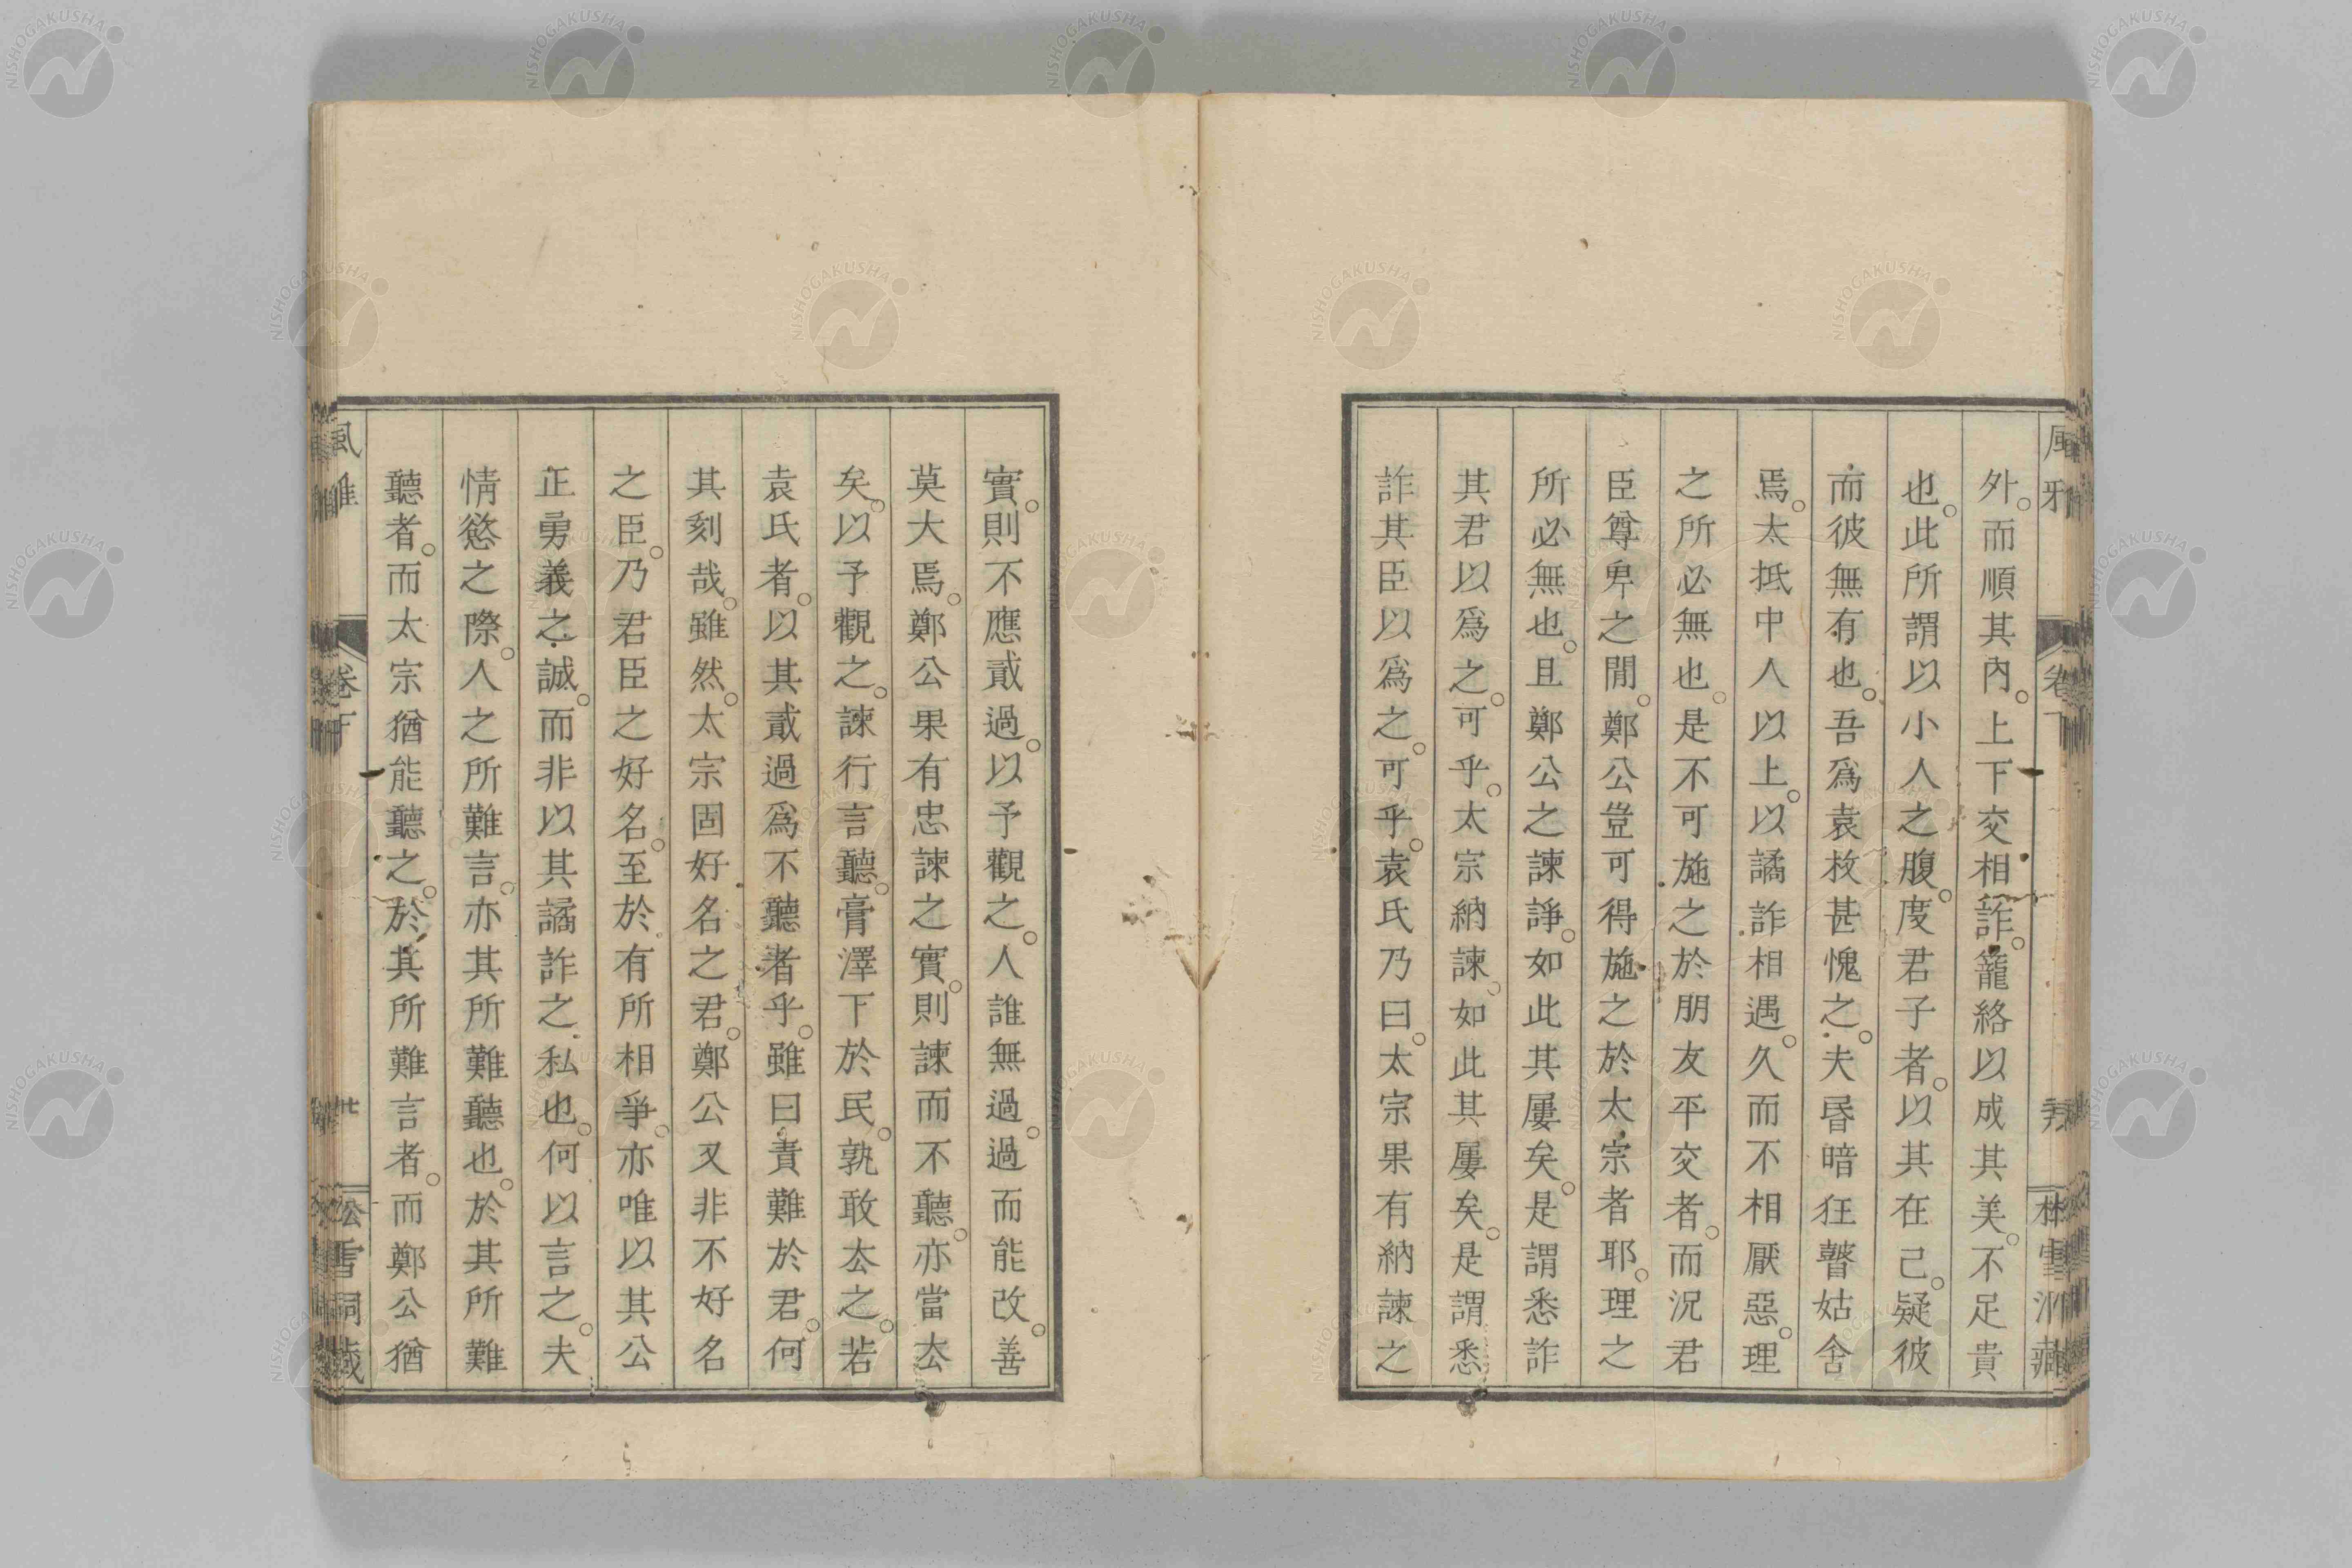 外。而順其內。上下交相詐。籠絡以成其美。不足貴
也。此所謂以小人之腹。度君子者。以其在己。疑彼
而彼無有也。吾爲袁枚甚愧之。夫昏暗狂瞽姑舍
焉。太抵中人以上。以譎詐相遇。久而不相厭惡。理
之所必無也。是不可施之於朋友平交者。而況君
臣尊卑之閒。鄭公豈可得施之於太宗者耶。理之
所必無也。且鄭公之諫諍。如此其屢矣。是謂悉詐
其君以爲之。可乎。太宗納諫。如此其屢矣。是謂悉
詐其臣以爲之。可乎。袁氏乃曰。太宗果有納諫之
實。則不應貳過。以予觀之。人誰無過。過而能改。善
莫大焉。鄭公果有忠諫之實。則諫而不聽。亦當去
矣。以予觀之。諫行言聽。膏澤下於民。孰敢去之。若
袁氏者。以其貳過爲不聽者乎。雖曰責難於君。何
其刻哉。雖然。太宗固好名之君。鄭公又非不好名
之臣。乃君臣之好名。至於有所相爭。亦唯以其公
正勇義之誠。而非以其譎詐之私也。何以言之。夫
情慾之際。人之所難言。亦其所難聽也。於其所難
聽者。而太宗猶能聽之。於其所難言者。而鄭公猶
風雅
卷下
廿
松雪洞藏